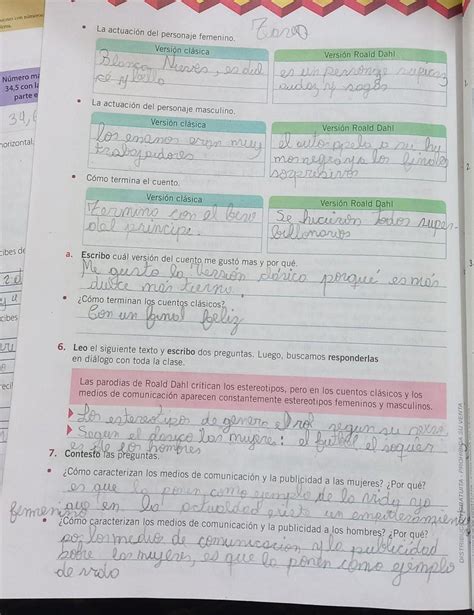 Tarea
• La actuación del personaje femenino.
Versión clásica
Blanca Nieves, es dul
ce y bella
Versión Roald Dahl
es un personaje
audaz y sagaz
Número ma
34,5 con la
parte e
• La actuación del personaje masculino.
Versión clásica
los enanos eran muy
trabajadores
Versión Roald Dahl
a su hu
mor negro y a los finales
sorpresivos
horizontal
• Cómo termina el cuento.
Versión clásica
termino con el beso
del principe.
Versión Roald Dahl
Se hicieron todos super-
billonarios
cibes de
a. Escribo cuál versión del cuento me gustó mas y por qué.
Me gusto la versión clásica porqué es más
dulce mas tierno.
• ¿Cómo terminan los cuentos clásicos?
Con un final feliz
cibes
6. Leo el siguiente texto y escribo dos preguntas. Luego, buscamos responderlas
en diálogo con toda la clase.
Las parodias de Roald Dahl critican los estereotipos, pero en los cuentos clásicos y los
medios de comunicación aparecen constantemente estereotipos femeninos y masculinos.
Los estereotipos de genero el rol segun su
Segun el clasico las mujeres: el futbol el
es de los hombres
7. Contesto las preguntas.
• ¿Cómo caracterizan los medios de comunicación y la publicidad a las mujeres? ¿Por qué?
es que la ponen como ejemplo de la vida ya
que en la actualidad existe un
femenino
• ¿Cómo caracterizan los medios de comunicación y la publicidad a los hombres? ¿Por qué?
los medio de comunicacion y la publicidad
sobre las mujeres, es que la ponen como ejemplo
de vida